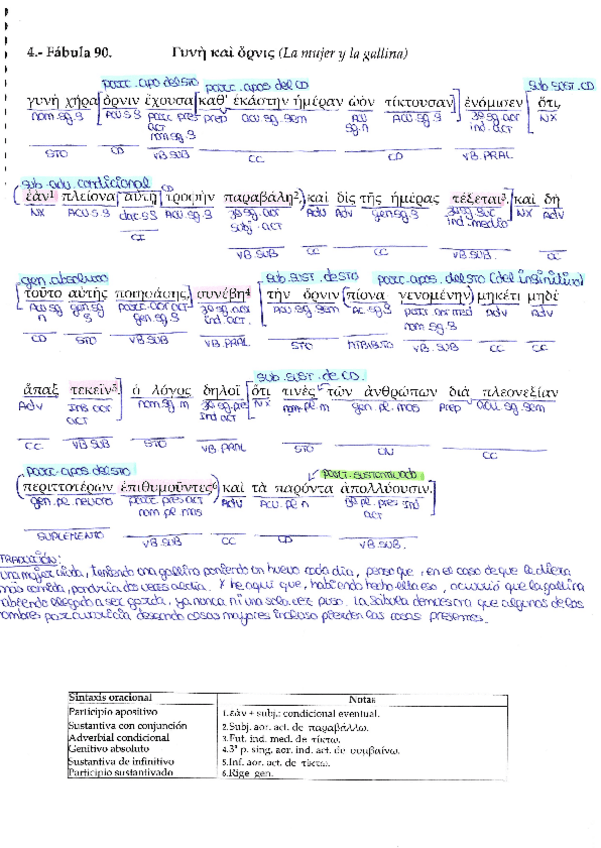 4.- Fábula 90. Γυνὴ καὶ ὄρνις (La mujer y la gallina)
part. apo del STO part. apos del CD Sub SUST. CD
γυνὴ χήρα ὄρνιν ἔχουσα καθ' ἑκάστην ἡμέραν ᾠὸν τίκτουσαν ἐνόμισεν ὅτι,
nom.sg.g ACU.S.g part. pres act nom.sg.g prep acu sg. gem ACU sg.n ACU.sg.g 3ª sg.aor ind. act NX
STO CD VB.SUB CC CD VB. PRAL
sub. adv. condicional CD
ἐὰν¹ πλείονα αὐτῇ τροφὴν παραβάλῃ², καὶ δὶς τῆς ἡμέρας τέξεται³. καὶ δὴ
NX ACU.S.g dat.S.g ACU sg.g 3ª sg. aor subj. act Adv Adv gen.sg.g ind. medio NX Adv
CI VB.SUB CC CC VB.SUB. CC
gen. absoluto Sub. SUST. de STO part. apos. del STO (del infinitivo)
τοῦτο αὐτῆς ποιησάσης, συνέβη⁴ τὴν ὄρνιν πίονα γενομένην μηκέτι μηδὲ
ACU sg n gen.sg g part. aor act gen.sg.g 3ª sg. aor ind. act. ACU sg gem AC.sg.g part. aor med Adv Adv
CD STO VB.SUB VB. PRAL STO Atributo VB. SUB CC CC
Sub. SUST. de CD.
ἅπαξ τεκεῖν⁵. ὁ λόγος δηλοῖ ὅτι τινὲς τῶν ἀνθρώπων διὰ πλεονεξίαν
Adv Inf aor act nom.sg m 3ª sg.pre Ind act NX nom.pl m gen. pl. mas Prep acu sg.gem
CC VB.SUB STO VB. PRAL STO CN CC
part. apos del STO part. sustantivado
περιττοτέρων ἐπιθυμοῦντες⁶ καὶ τὰ παρόντα ἀπολλύουσιν.
gen. pl. neutro part. pres act nom pl mas Adv ACU. pl n 3ª pl. pres Ind act
SUPLEMENTO VB.SUB CC CD VB.SUB.
TRADUCCIÓN:
Una mujer viuda, teniendo una gallina poniendo un huevo cada día, pensó que, en el caso de que la diera
más comida, pondría dos veces al día. Y he aquí que, habiendo hecho ella eso, ocurrió que la gallina
habiendo llegado a ser gorda, ya nunca ni una sola vez puso. La fábula demuestra que algunos de los
hombres por avaricia deseando cosas mayores incluso pierden las cosas presentes.
Sintaxis oracional Notas
Participio apositivo 1. ἐάν + subj.: condicional eventual.
Sustantiva con conjunción 2. Subj. aor. act. de παραβάλλω.
Adverbial condicional 3. Fut. ind. med. de τίκτω.
Genitivo absoluto 4. 3ª p. sing. aor. ind. act. de συμβαίνω.
Sustantiva de infinitivo 5. Inf. aor. act. de τίκτω.
Participio sustantivado 6. Rige gen.